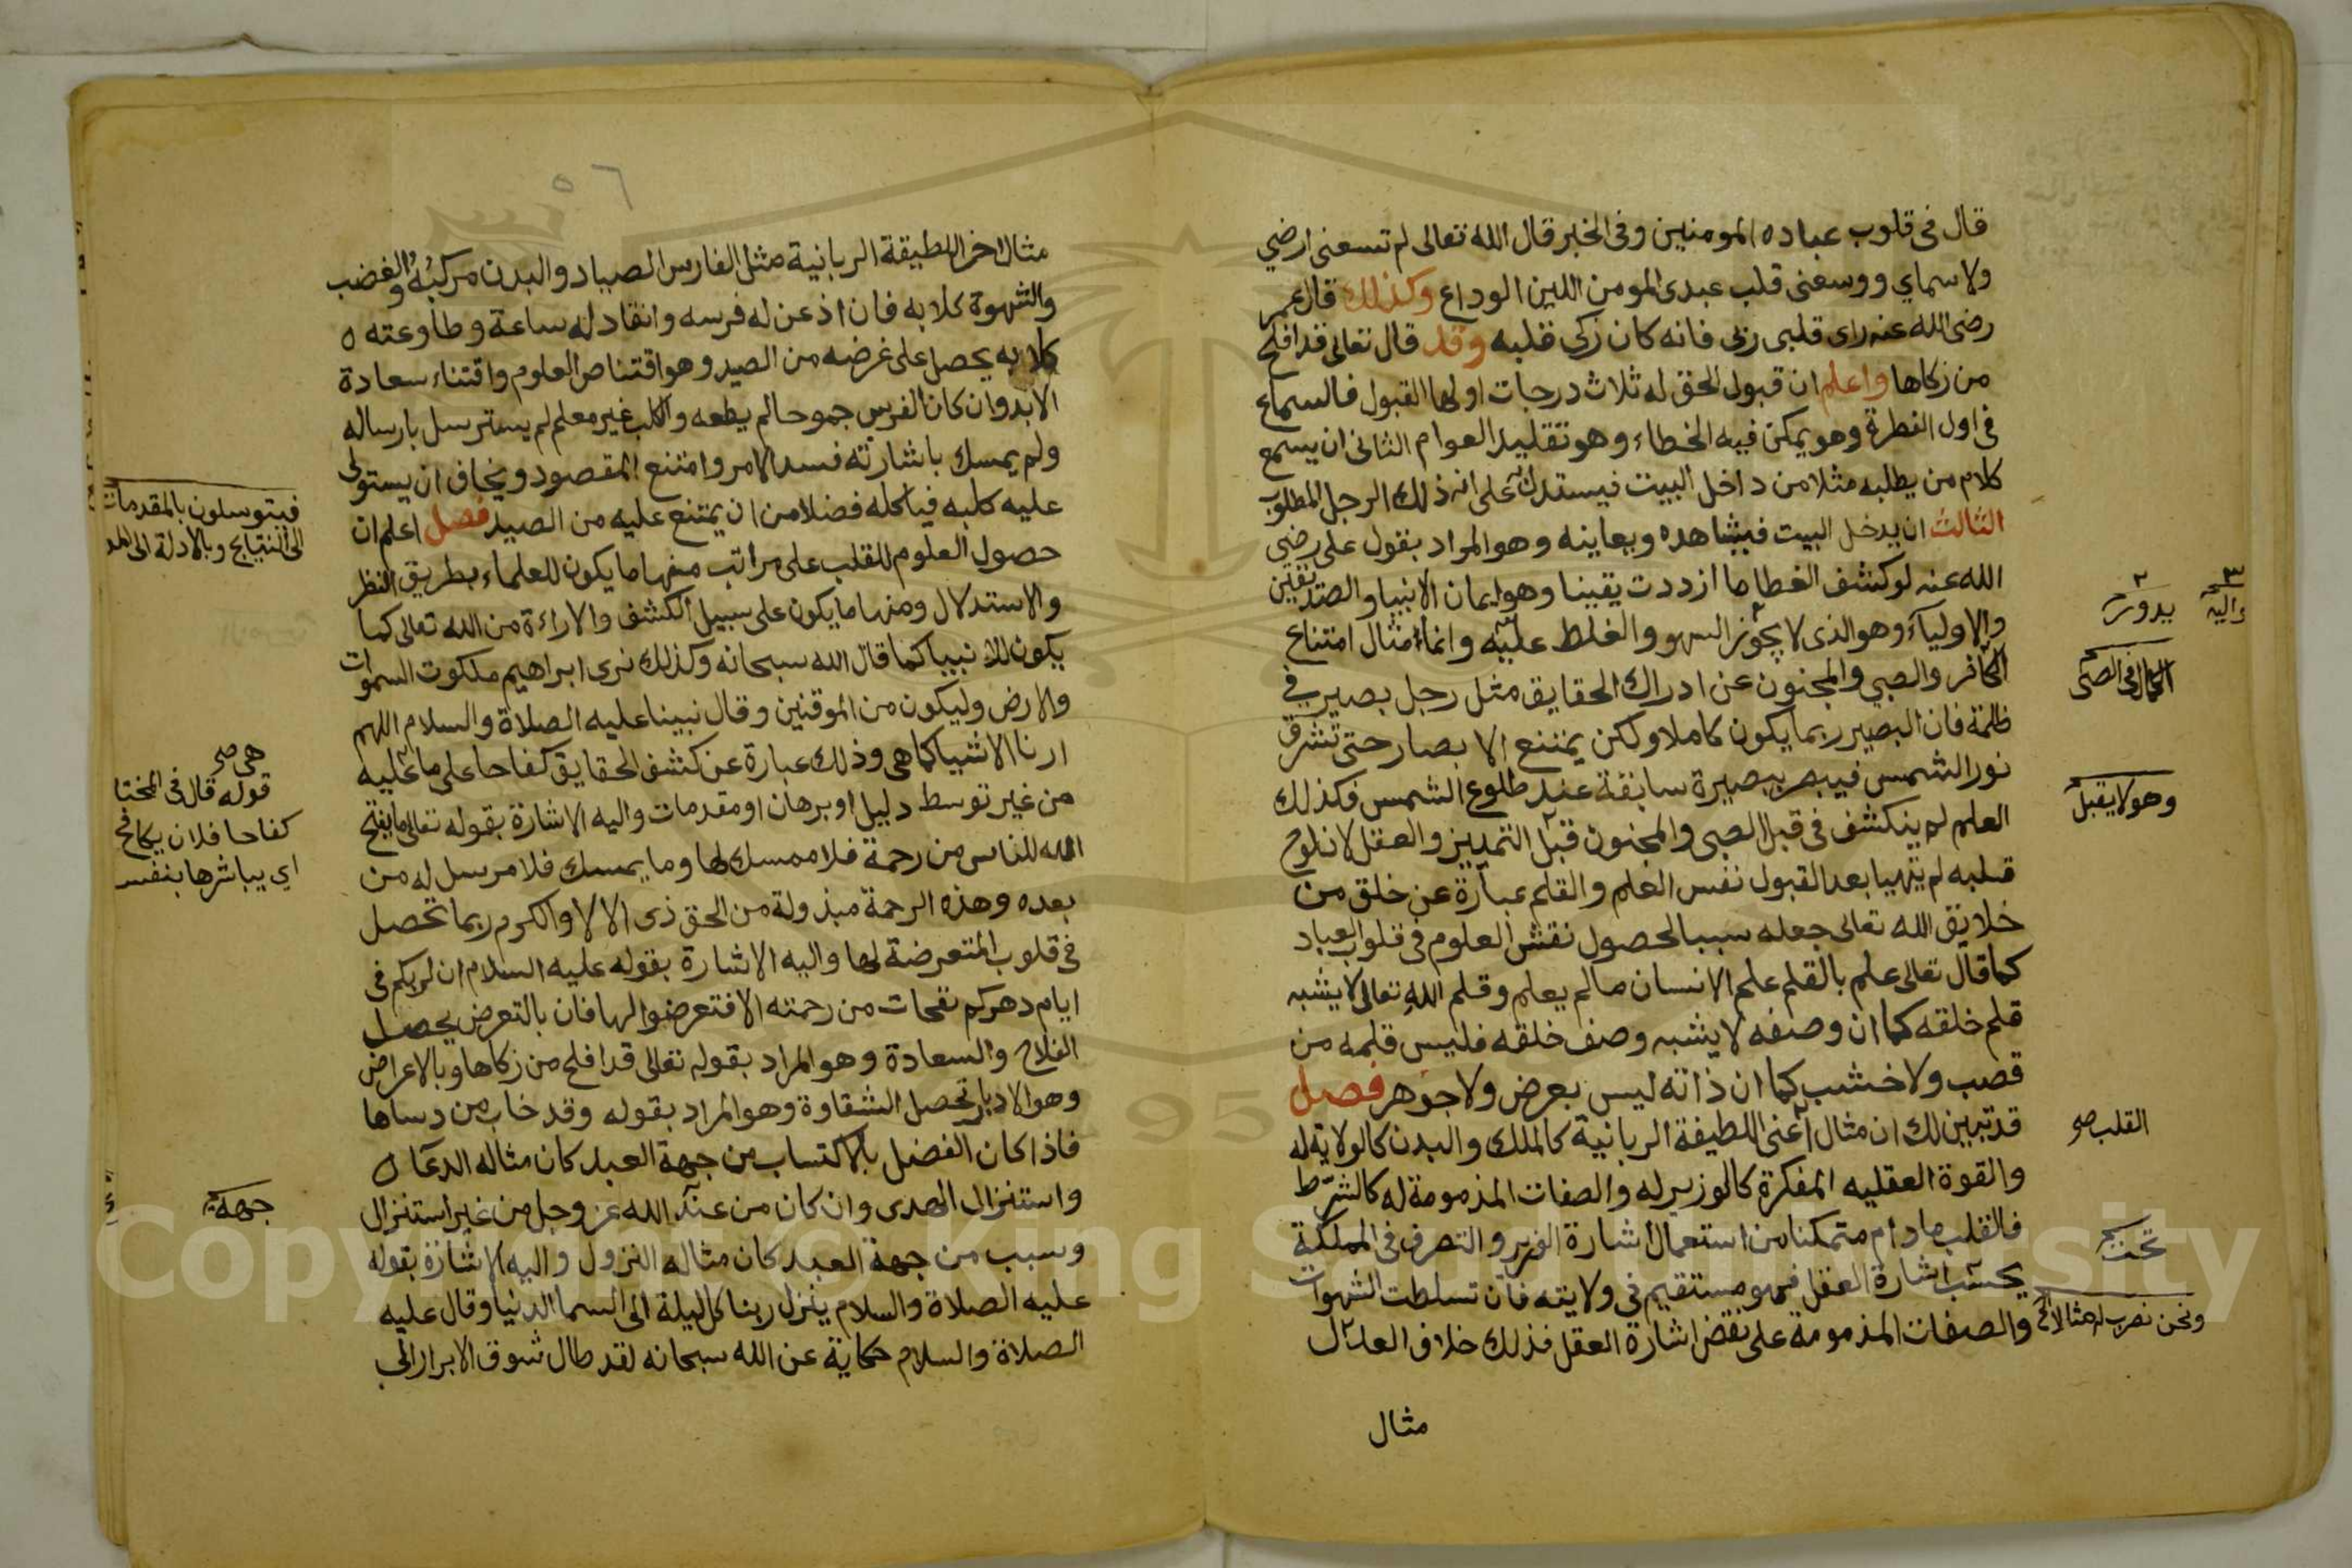 قال فى قلوب عباده المومنين وفى الخبر قال الله تعالى لم تسعنى ارضي
ولا سماي ووسعنى قلب عبدى المومن اللين الوداع وكذلك قال عمر
رضى الله عنه راى قلبى ربى فانه كان زكى قلبه وقد قال تعالى قد افلح
من زكاها واعلم ان قبول الحق له ثلاث درجات اولها القبول فالسماع
فى اول الفطرة وهو يمكن فيه الخطاء وهو تقليد العوام الثانى ان يسمع
كلام من يطلبه مثلا من داخل البيت فيستدل على انه ذلك الرجل المطلوب
الثالث ان يدخل البيت فيشاهده ويعاينه وهو المراد بقول على رضى
الله عنه لو كشف الغطا ما ازددت يقينا وهو ايمان الانبيا والصديقين
والاولياء وهو الذى لا يجوز السهو والغلط عليه وانما مثال امتناع
الكافر والصبي والمجنون عن ادراك الحقايق مثل رجل بصير في
ظلمة فان البصير ربما يكون كاملا ولكن يمتنع الابصار حتى تشرق
نور الشمس فيبصر ببصيرة سابقة عند طلوع الشمس فكذلك
العلم لم ينكشف فى قبل الصبى والمجنون قبل التمييز والعقل لان لوح
قلبه لم يتهيا بعد لقبول نفس العلم والقلم عبارة عن خلق من
خلايق الله تعالى جعله سببا لحصول نقش العلوم فى قلوب العباد
كما قال تعالى علم بالقلم علم الانسان مالم يعلم وقلم الله تعالى لا يشبه
قلم خلقه كما ان وصفه لا يشبه وصف خلقه فليس قلمه من
قصب ولا خشب كما ان ذاته ليس بعرض ولا جوهر فصل
قد تبين لك ان مثال اعنى اللطيفة الربانية كالملك والبدن كالولاية له
والقوة العقليه المفكرة كالوزير له والصفات المذمومة له كالشرط
فالقلب مادام متمكنا من استعمال اشارة الوزير والتصرف فى المملكة
يحسب اشارة العقل فهو مستقيم فى ولايته فان تسلطت الشهوات
والصفات المذمومة على نقض اشارة العقل فذلك خلاف العدل
مثال
واليه
يدورت
وهو لا يقبل
القلب صح
تحت
ونحن نضرب له مثالا اخر
٥٦
مثال اخر اللطيفة الربانية مثل الفارس الصياد والبدن مركبه والغضب
والشهوة كلابه فان اذعن له فرسه وانقاد له ساعة وطاوعته
كلابه يحصل على غرضه من الصيد وهو اقتناص العلوم واقتناء سعادة
الابد وان كان الفرس جموحا لم يطعه والكلب غير معلم لم يسترسل بارساله
ولم يمسك باشارته فسد الامر وامتنع المقصود ويخاف ان يستولى
عليه كلبه فياكله فضلا من ان يمتنع عليه من الصيد فصل اعلم ان
حصول العلوم للقلب على مراتب منها ما يكون للعلماء بطريق النظر
والاستدلال ومنها ما يكون على سبيل الكشف والاراءة من الله تعالى كما
يكون للانبيا كما قال الله سبحانه وكذلك نرى ابراهيم ملكوت السموات
والارض وليكون من الموقنين وقال نبينا عليه الصلاة والسلام اللهم
ارنا الاشيا كما هى وذلك عبارة عن كشف الحقايق كفاحا على ما عليه
من غير توسط دليل او برهان او مقدمات واليه الاشارة بقوله تعالى ما يفتح
الله للناس من رحمة فلا ممسك لها وما يمسك فلا مرسل له من
بعده وهذه الرحمة مبذولة من الحق ذى الالا والكرم ربما تحصل
فى قلوب المتعرضة لها واليه الاشارة بقوله عليه السلام ان لربكم فى
ايام دهركم نفحات من رحمته الا فتعرضوا لها فان بالتعرض يحصل
الفلاح والسعادة وهو المراد بقوله تعالى قد افلح من زكاها وبالاعراض
وهو الادبار تحصل الشقاوة وهو المراد بقوله وقد خاب من دساها
فاذا كان الفضل بالاكتساب من جهة العبد كان مثاله الدعا
واستنزال الهدى وان كان من عند الله عز وجل من غير استنزال
وسبب من جهة العبد كان مثاله النزول واليه الاشارة بقوله
عليه الصلاة والسلام ينزل ربنا كل ليلة الى السما الدنيا وقال عليه
الصلاة والسلام حكاية عن الله سبحانه لقد طال شوق الابرار الى
فيتوسلون بالمقدمات
الى النتايج وبالادلة الى
هى صح
قوله قال فى المختار
كفاحا فلان يكافح
اي يباشرها بنفسه
جهة
Copyright © King Saud University